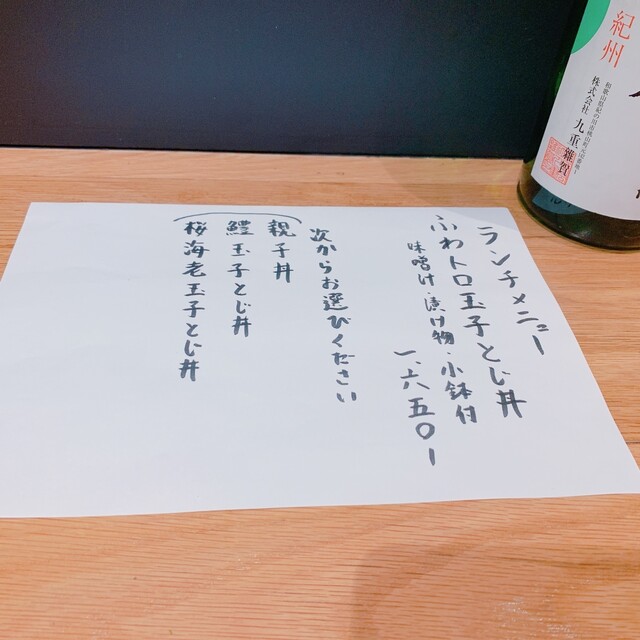 ランチメニュー
ふわトロ玉子とじ丼
味噌汁・漬け物・小鉢付
一、六五〇ー
次からお選びください
親子丼
鱧玉子とじ丼
桜海老玉子とじ丼
紀州
株式会社 九重雜賀